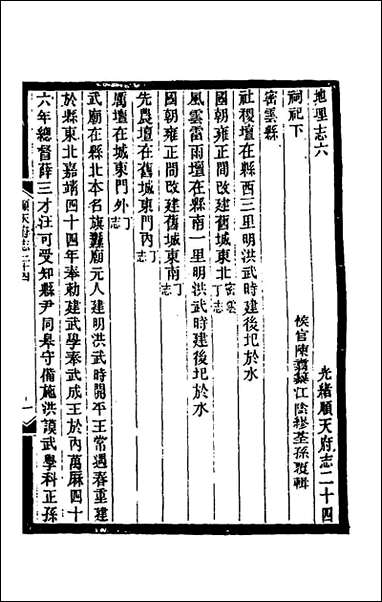 光緒順天府志二十四
地理志六
侯官陳翥纂江陰繆荃孫覆輯
祠祀下
密雲縣
社稷壇在縣西三里明洪武時建後圮於水
國朝雍正間改建舊城東北丁志密雲
風雲雷雨壇在縣南一里明洪武時建後圮於水
國朝雍正間改建舊城東南丁志
先農壇在舊城東門內丁志
厲壇在城東門外丁志
武廟在縣北本名旗纛廟元人建明洪武時開平王常遇春重建
於縣東北嘉靖四十四年奉勅建武學奉武成王於內萬厤四十
六年總督薛三才汪可受知縣尹同皋守備施洪謨武學科正孫
順天府志二十四
一